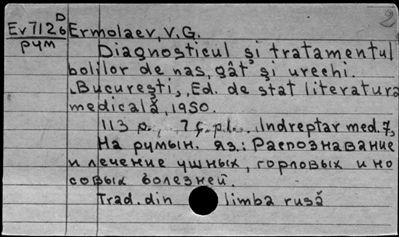 2
D
Ev7126 Ermolaev, V.G.
рум
Diagnosticul și tratamentul
bolilor de nas, gât și urechi.
București, Ed. de stat literatura
medicală, 1950.
113 p., 7 f. pl. Indreptar med. 7,
На румын. яз.: Распознавание
и лечение ушных, горловых и но
совых болезней.
Trad. din limba rusă